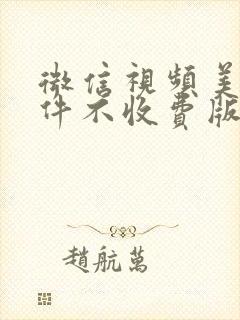 微信視頻美
件不收費版
趙航萬